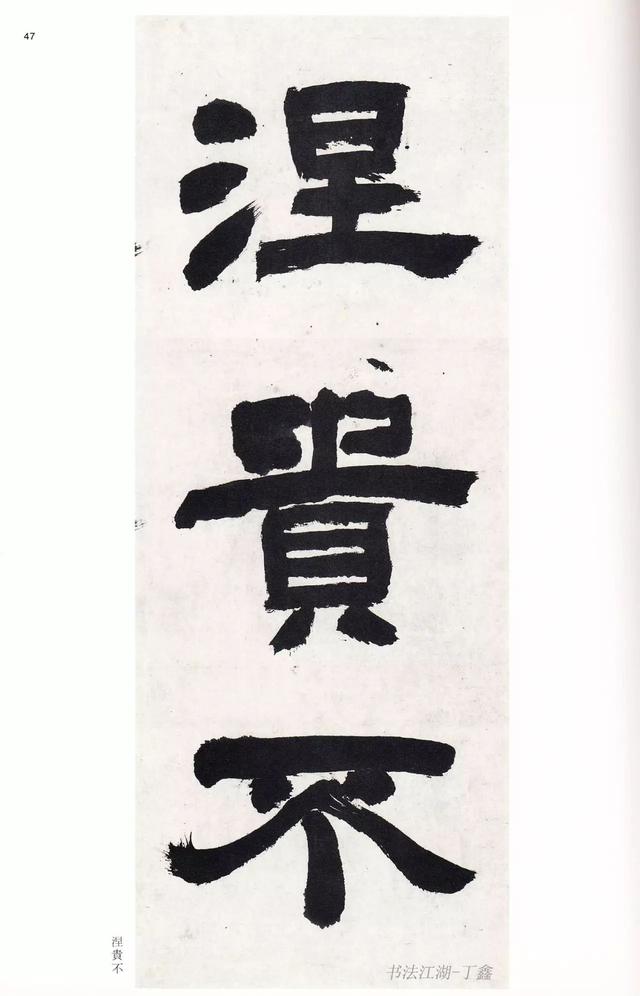 47
涅
貴
不
涅貴不
书法江湖-丁鑫